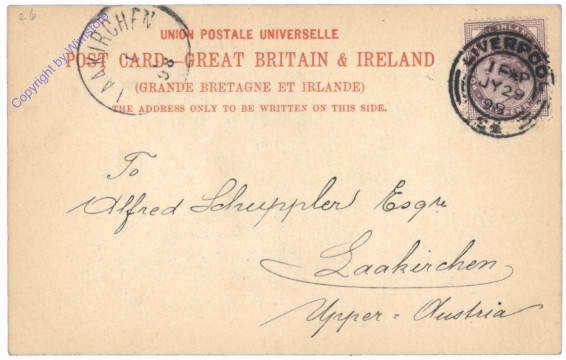 26
Copyright by Wimstore
LAAKIRCHEN
98
LIVERPOOL
1 PXP
JY 29
98
UNION POSTALE UNIVERSELLE
POST CARD—GREAT BRITAIN & IRELAND
(GRANDE BRETAGNE ET IRLANDE)
THE ADDRESS ONLY TO BE WRITTEN ON THIS SIDE.
To
Alfred Schuppler Esqre
Laakirchen
Upper=Austria